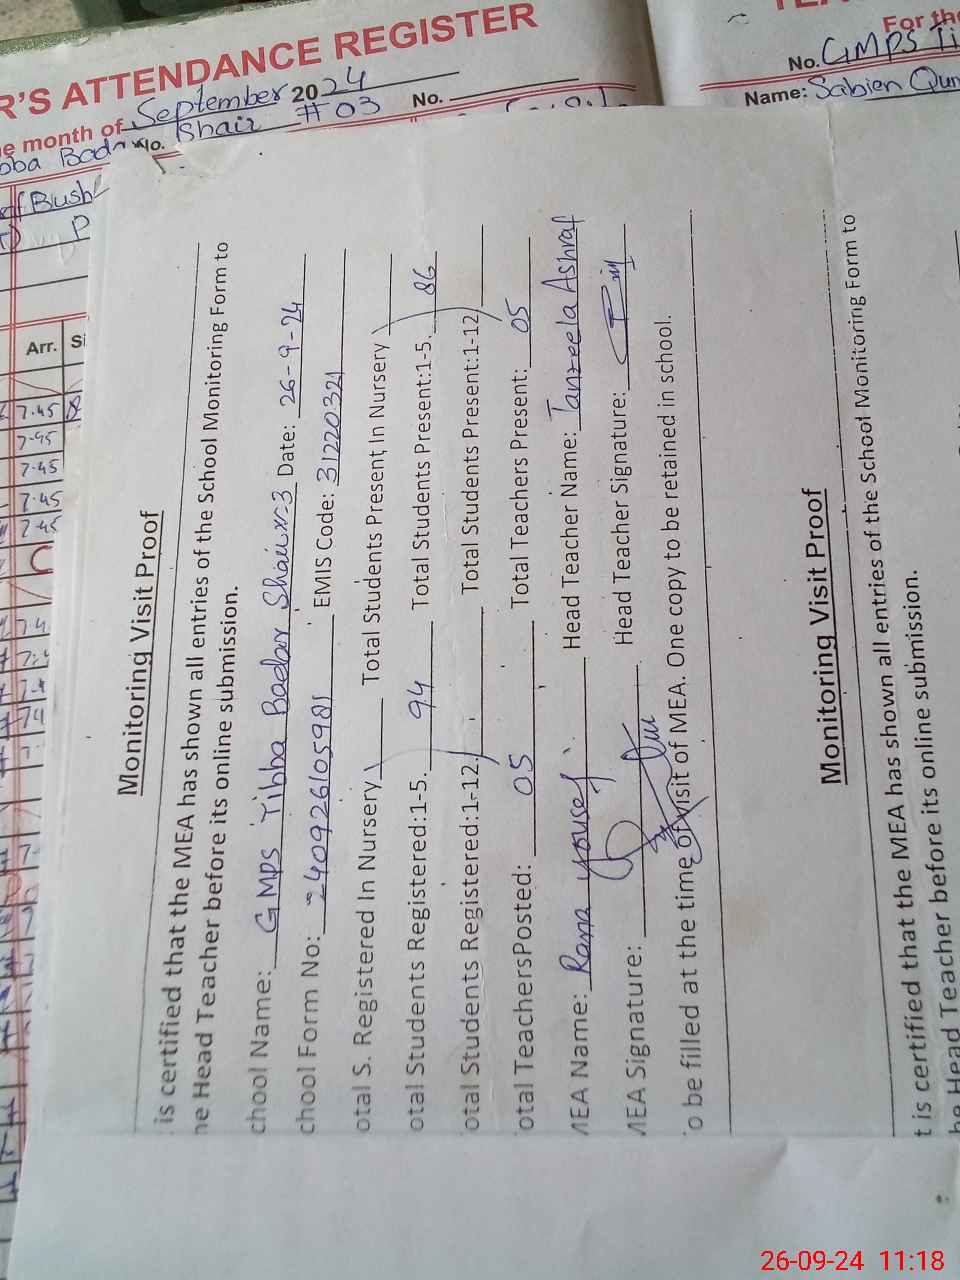 R'S ATTENDANCE REGISTER
e month of September 2024
No. Shair #03 No.
bba Badar
Bush
P
Arr.
7.45
7-45
7.45
7.45
7.45
For the
No. GMPS Ti
Name: Sabien
Monitoring Visit Proof
is certified that the MEA has shown all entries of the School Monitoring Form to
he Head Teacher before its online submission.
chool Name: GMPS Tibba Badar Shair N-3 Date: 26-9-24
chool Form No: 24092610598 EMIS Code: 31220321
otal S. Registered In Nursery Total Students Present, In Nursery
otal Students Registered:1-5. 94 Total Students Present:1-5. 86
otal Students Registered:1-12. Total Students Present:1-12
otal TeachersPosted: 05 Total Teachers Present: 05
MEA Name: Rana yousef Head Teacher Name: Tanzeela Ashraf
MEA Signature: Head Teacher Signature:
o be filled at the time of visit of MEA. One copy to be retained in school.
Monitoring Visit Proof
t is certified that the MEA has shown all entries of the School Monitoring Form to
he Head Teacher before its online submission.
26-09-24 11:18